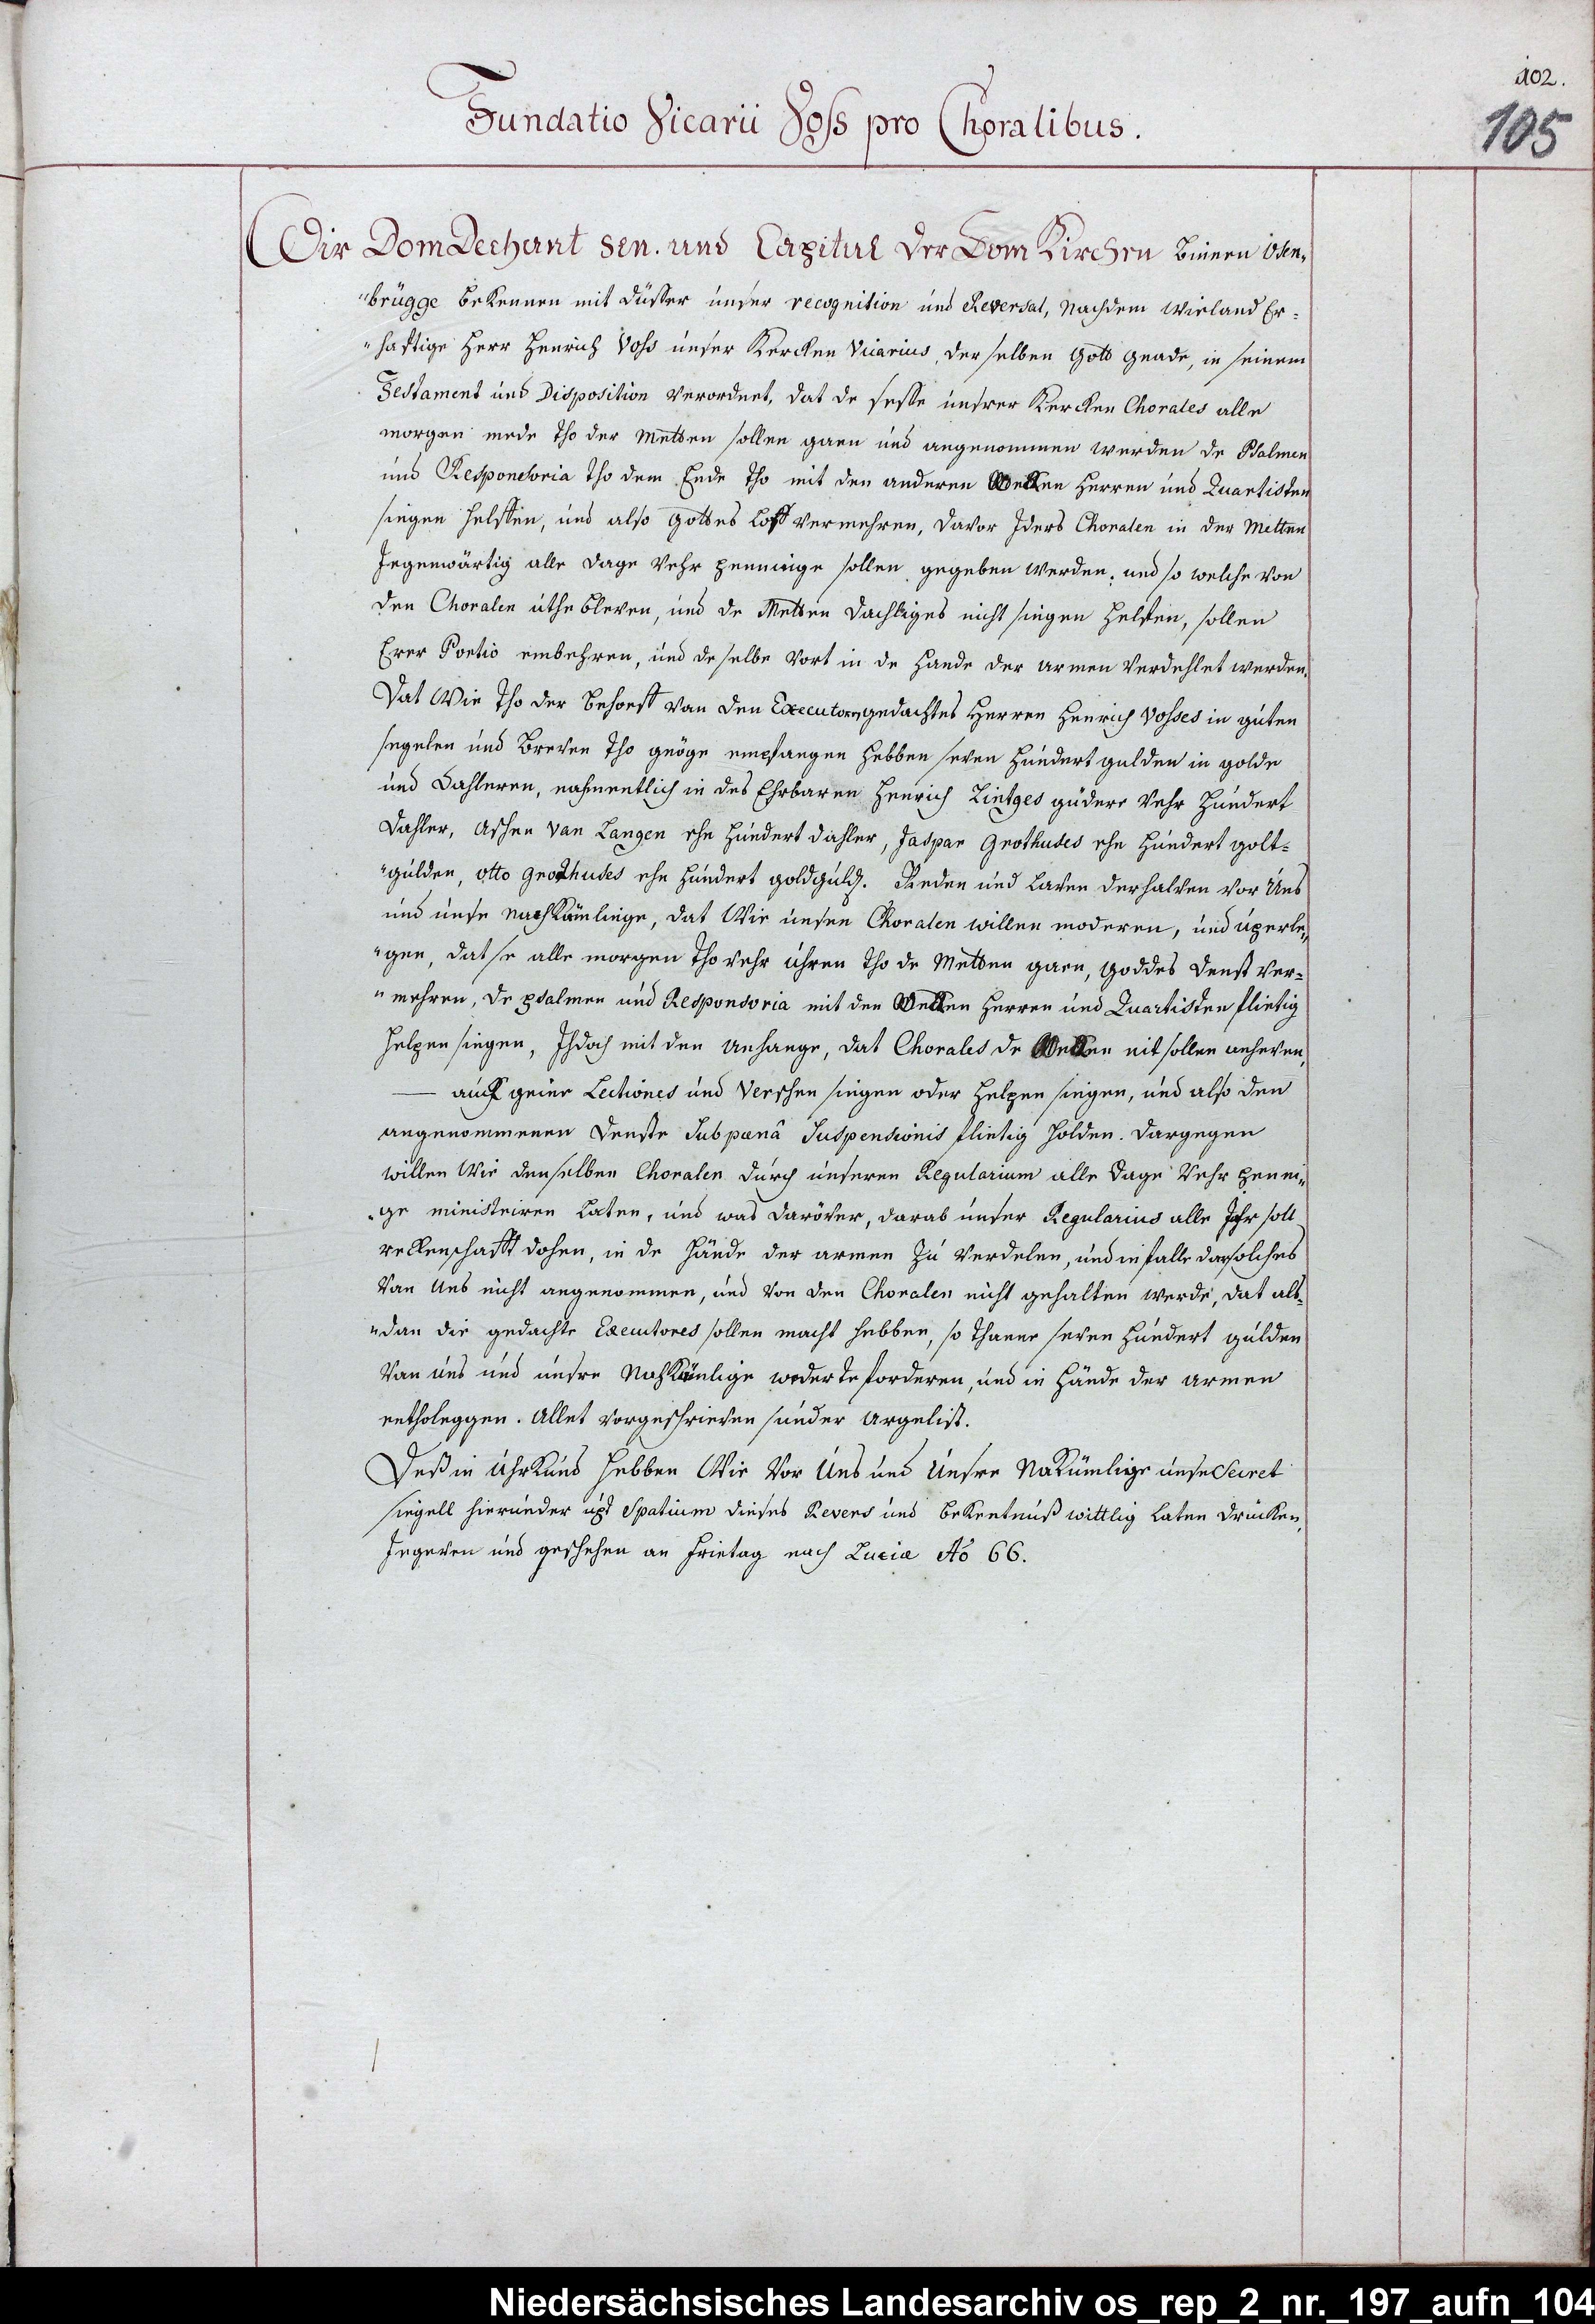 102.
105
Fundatio Vicarii Voss pro Choralibus.
Wir DomDechant Sen. und Capitul der Dom Kirchen binnen Osen„
„brügge bekennen mit düsser unser recognition und Reversal, Nachdem Wieland Er=
„haftige Herr Henrich Voss unser Kercken Vicarius, der selben Gott gnade, in seinem
Testament und Disposition verordnet, dat de sesse unsrer Kercken Chorales alle
morgen mede tho der Metten sollen gaen und angenommen werden de Psalmen
und Responsoria tho dem Ende tho mit den anderen Herren und Quartisten
singen helffen, und also Gottes Loff vermehren, davor Jders Choralen in der Metten
Jegenwärtig alle dage Vehr penninge sollen gegeben werden, und so welche von
den Choralen uthe bleven, und de Metten dachliges nicht singen helffen, sollen
Erer Portio embehren, und deselbe vort in de Hande der armen verdehlet werden.
Dat Wie tho der behoeff van den Executorn gedachtes Herren Henrich Vosses in guten
segelen und breven tho gnöge empfangen hebben seven hundert gulden in golde
und Dahleren, nahmentlich in des Ehrbaren Henrich Lintges güdere Vehr hundert
Dahler, Aschen van Langen ehn hundert dahler, Jaspar Grothuses ehn hundert golt=
„gulden, Otto Grothuses ehn hundert goldguld. Reden und Laven derhalven vor Uns
und unse Nachkümlinge, dat Wir unsen Choralen willen moderen, und uperle„
„gen, dat se alle morgen tho vehr uhren tho de Metten gaen, Goddes denst ver=
„mehren, de psalmen und Responsoria mit den Herren und Quartisten flietig
helpen singen, Jhdoch mit den Anhange, dat Chorales de nit sollen anheven,
— auch geine Lectiones und Verschen singen oder helpen singen, und also den
angenommenen denste Sub pœnâ Suspensionis flietig holden. Dargegen
willen Wir denselben Choralen durch unseren Regularium alle dage Vehr penni„
„ge ministriren Laten, und was daröver, darab unser Regularius alle Jahr soll
reckenschafft dohen, in de Hände der armen zu verdelen, und in falle dar solches
Van Uns nicht angenommen, und von den Choralen nicht gehalten werde, dat als„
„dan die gedachte Executores sollen macht hebben, so thanne seven hundert gulden
Van uns und unsre Nachkümlige weder te forderen, und in Hände der armen
entholeggen. Allet vorgeschrieven sunder Argelist.
Deß in Uhrkund hebben Wir Vor Uns und Unsere Nakümlige unse Secret
siegell hierunder upt Spatium dieses Revers und bekentnuß wittlig Laten drücken,
Jegeven und geschehen an frietag nach Luciæ Aō 66.
Niedersächsisches Landesarchiv os_rep_2_nr._197_aufn_104